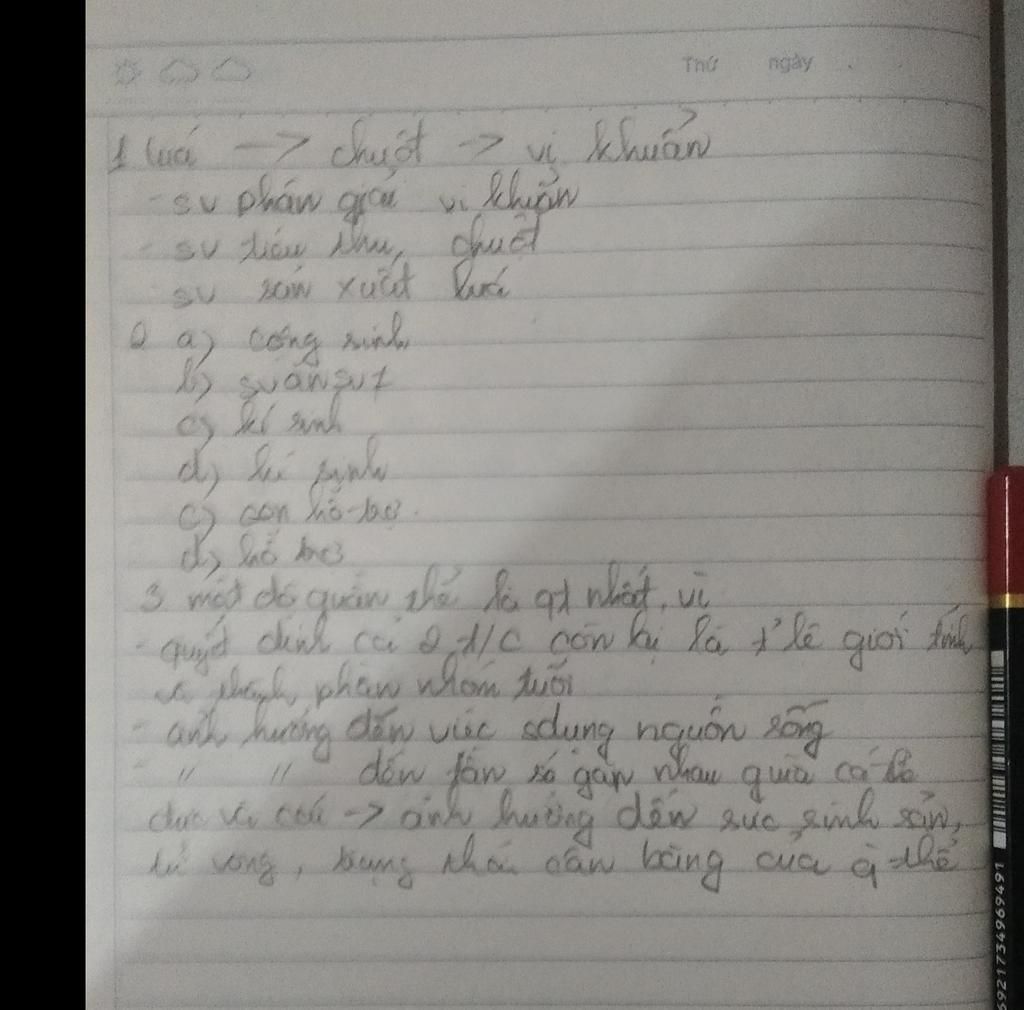 Thứ ngày
1 lúa -> chuột -> vi khuẩn
- sv phân giải vi khuẩn
- sv tiêu thụ, chuột
sv sản xuất lúa
2 a) cộng sinh
b) sv ăn sv ≠
c) kí sinh
d) kí sinh
c) con hỗ trợ
d) hỗ trợ
3 mật độ quần thể là qt nhất, vì
- quyết định cả 2 t/c còn lại là tỉ lệ giới tính
và thành phần nhóm tuổi
- ảnh hưởng đến việc sdụng nguồn sống
- " " đến tần số gặp nhau giữa cá thể
đực và cái -> ảnh hưởng đến sức sinh sản,
tử vong, trạng thái cân bằng của q-thể
6921734969491